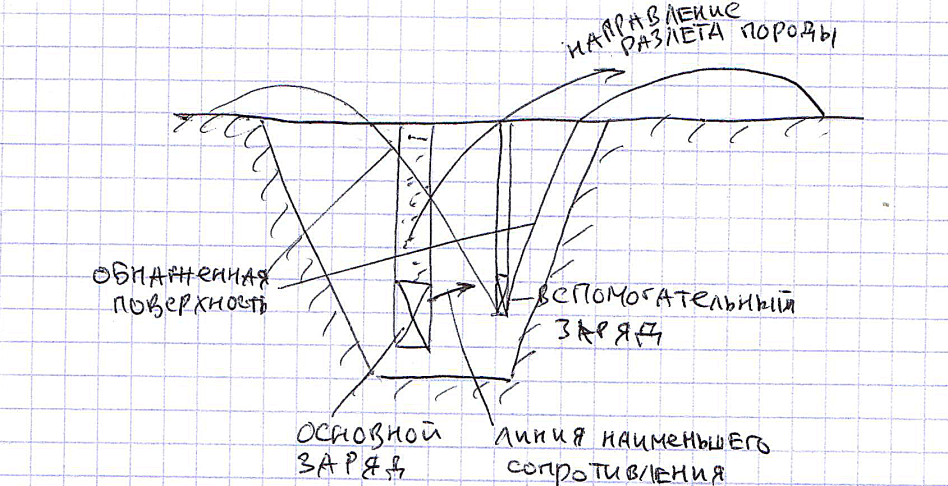 НАПРАВЛЕНИЕ
РАЗЛЕТА ПОРОДЫ
ОБНАЖЕННАЯ
ПОВЕРХНОСТЬ
ВСПОМОГАТЕЛЬНЫЙ
ЗАРЯД
ОСНОВНОЙ
ЗАРЯД
ЛИНИЯ НАИМЕНЬШЕГО
СОПРОТИВЛЕНИЯ